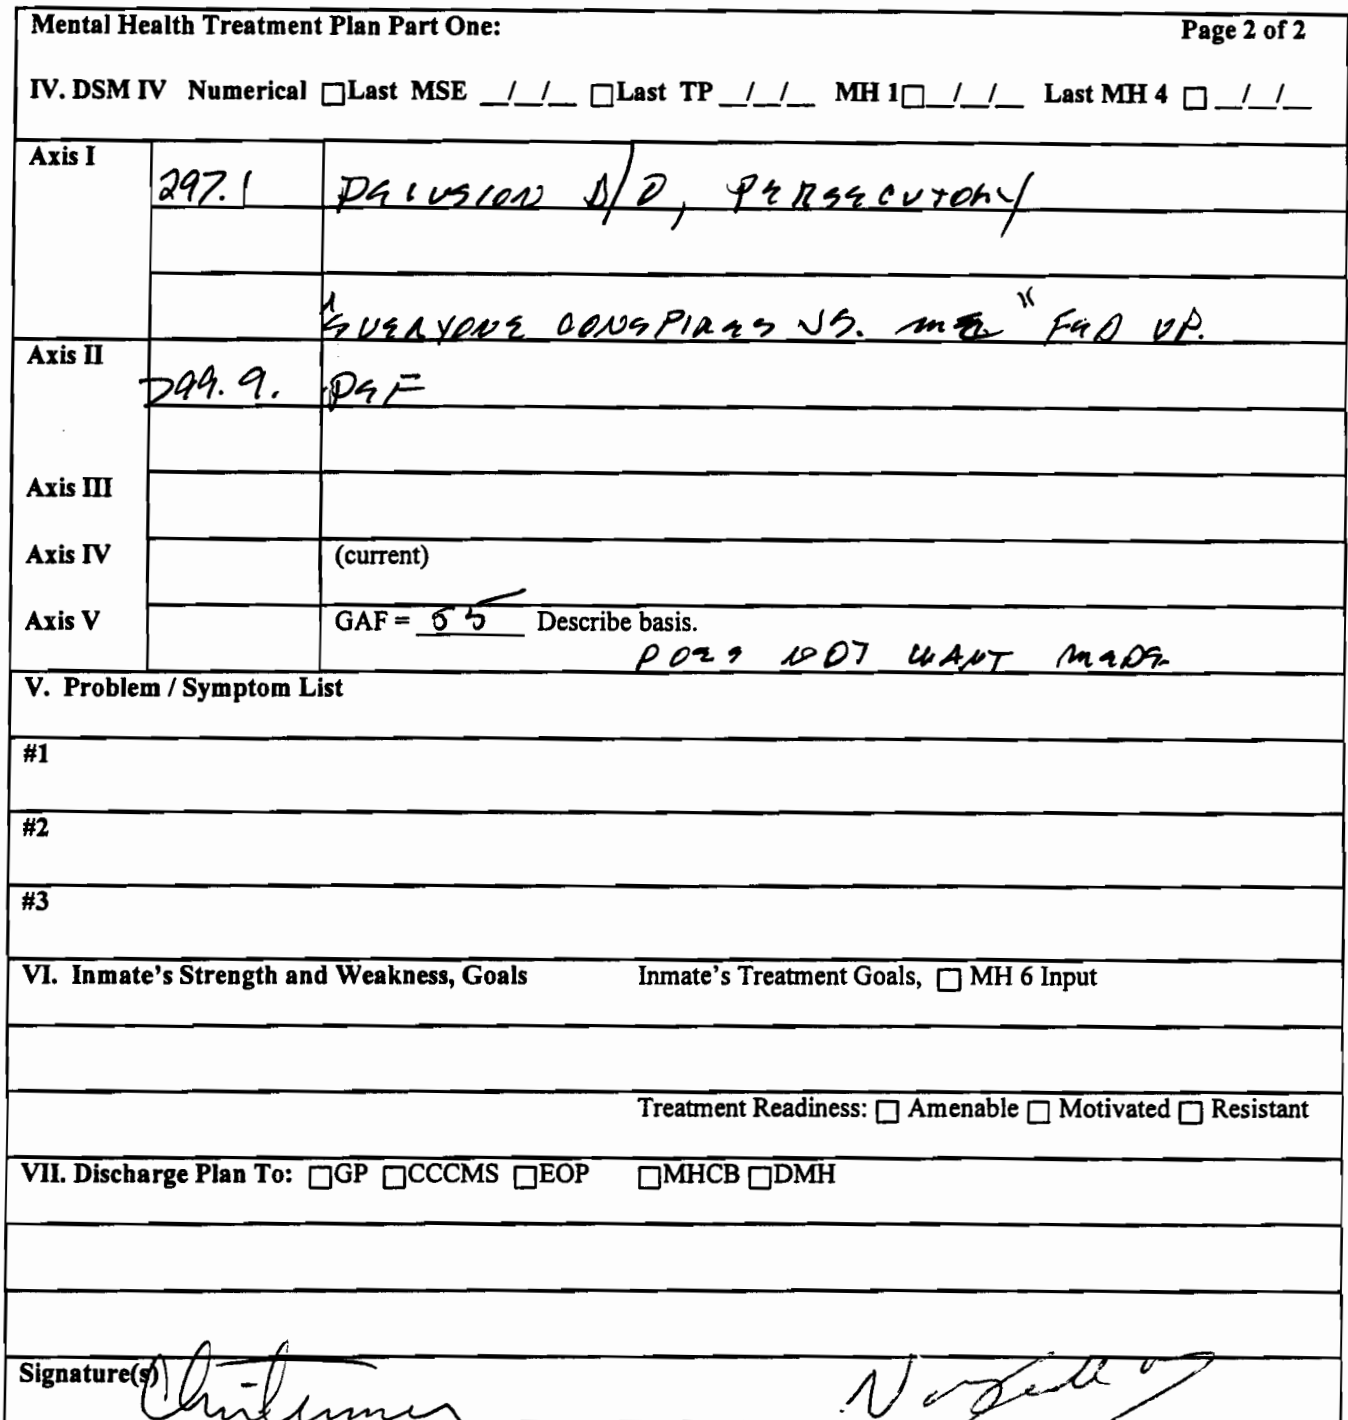 Mental Health Treatment Plan Part One: Page 2 of 2
IV. DSM IV Numerical □Last MSE __/__/__ □Last TP __/__/__ MH 1□__/__/__ Last MH 4 □ __/__/__
Axis I
297.1 DELUSION D/D, PERSECUTORY
"EVERYONE CONSPIRES VS. ME" FED UP.
Axis II
799.9. DEF
Axis III
Axis IV (current)
Axis V GAF = 55 Describe basis.
DOES NOT WANT MEDS.
V. Problem / Symptom List
#1
#2
#3
VI. Inmate's Strength and Weakness, Goals Inmate's Treatment Goals, □ MH 6 Input
Treatment Readiness: □ Amenable □ Motivated □ Resistant
VII. Discharge Plan To: □GP □CCCMS □EOP □MHCB □DMH
Signature(s)